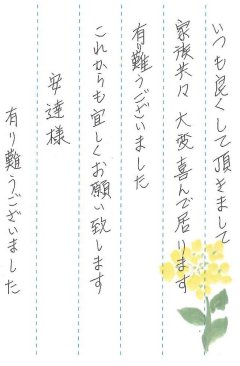 いつも良くして頂きまして
家族共々大変喜んで居ります
有り難うございました
これからも宜しくお願い致します
安達様
有り難うございました